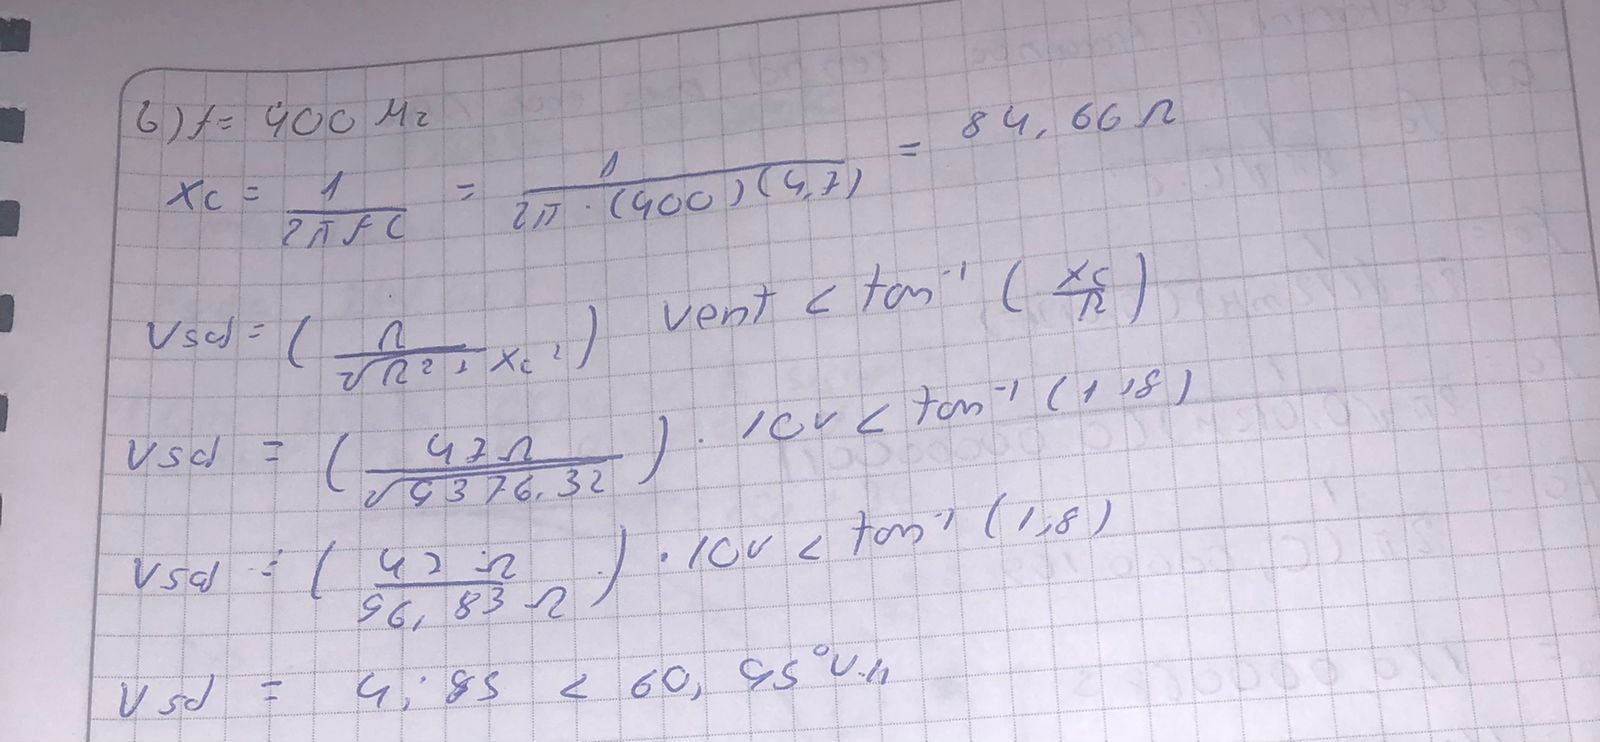 b) f = 400 Hz
Xc = 1 / 2πfC = 1 / 2π · (400)(4,7) = 84,66 Ω
Vsal = ( R / √R² + Xc² ) Vent < tan⁻¹ ( Xc / R )
Vsal = ( 47Ω / √9376,32 ) · 10V < tan⁻¹ (1,8)
Vsal = ( 47 Ω / 96,83 Ω ) · 10V < tan⁻¹ (1,8)
Vsal = 4,85 < 60,95°